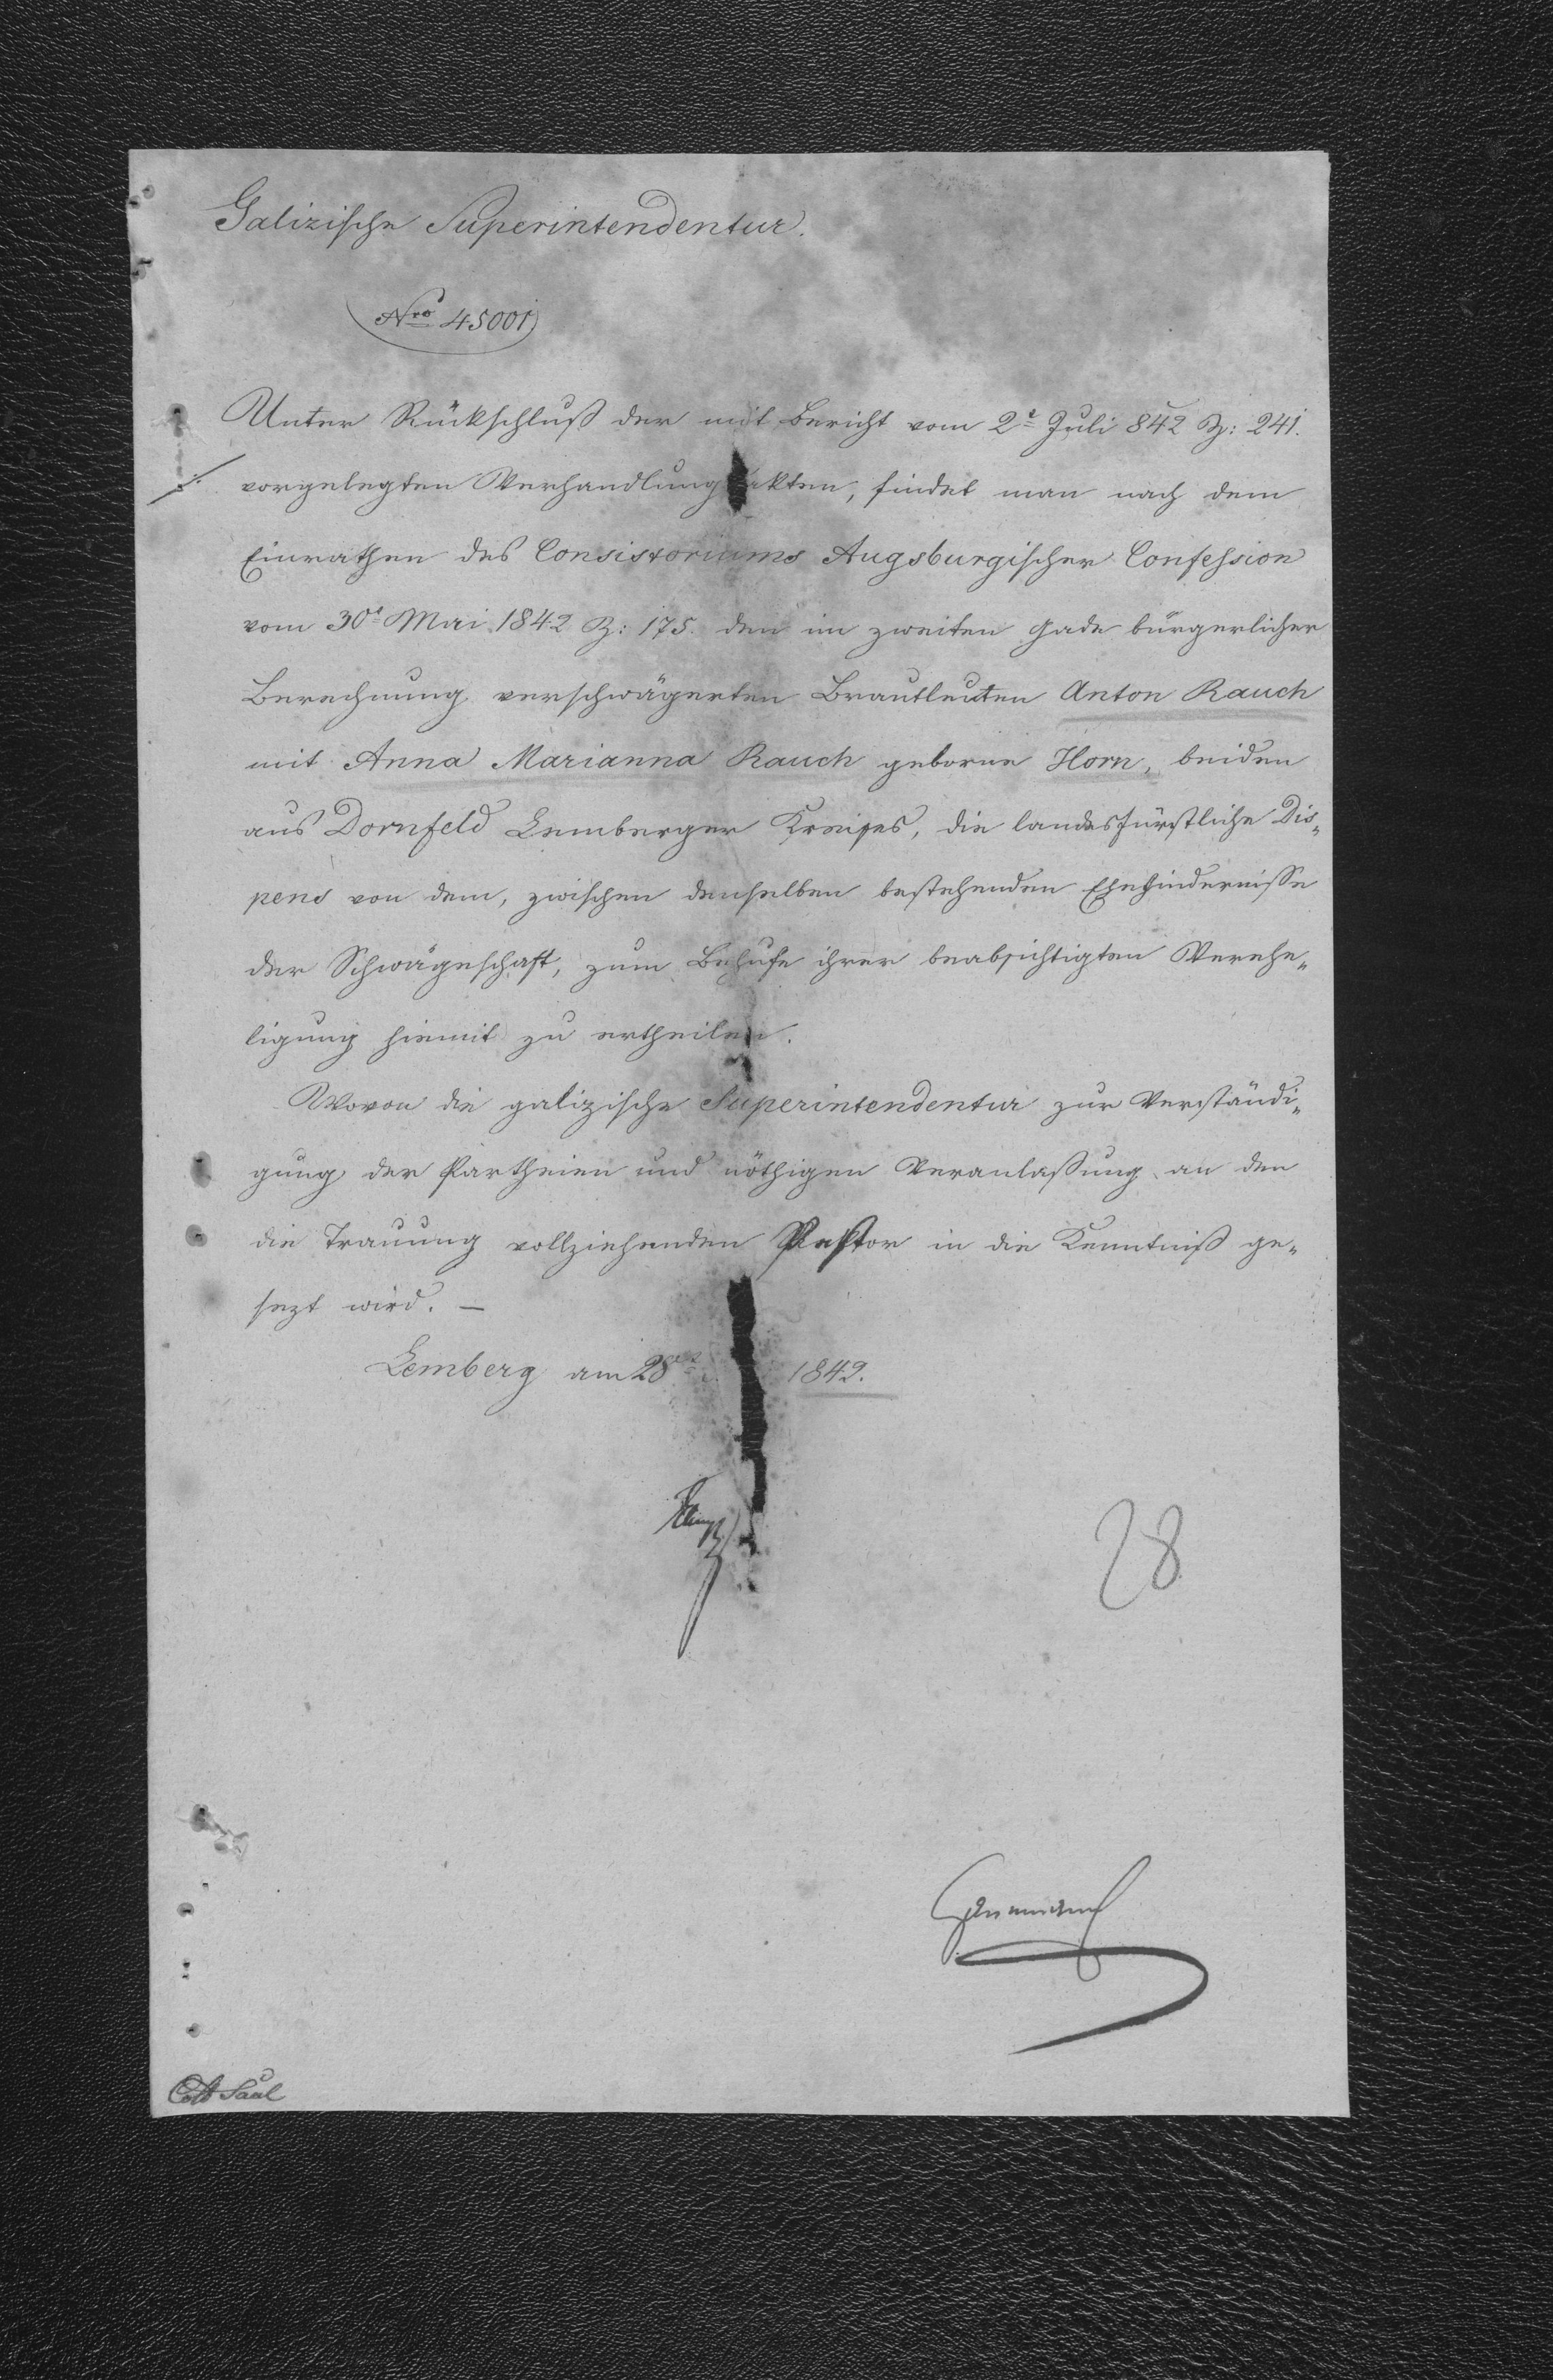 Galizische Superintendentur.
Nro 45001
Unter Rückschluß der mit Bericht vom 2t Juli 842 Z: 241.
vorgelegten Verhandlung akten, findet man nach dem
Einrathen des Consistoriums Augsburgischer Confession
vom 30t Mai 1842 Z: 175. den im zweiten Gade bürgerlicher
Berechnung verschwägerten Brautleuten Anton Rauch
mit Anna Marianna Rauch geborne Horn, beiden
aus Dornfeld Lemberger Kreises, die landesfürstliche Dis„
pens von dem, zwischen denselben bestehenden Ehehindernisse
der Schwägeschaft, zum Behufe ihrer beabsichtigten Verehe„
ligung hiemit zu ertheilen.
Wovon die galizische Superintendentur zur Verständi„
gung der Partheien und nöthigen Veranlaßung an den
die Trauung vollziehenden Pastor in die Kenntniß ge„
sezt wird. –
Lemberg am 28t 1842.
28